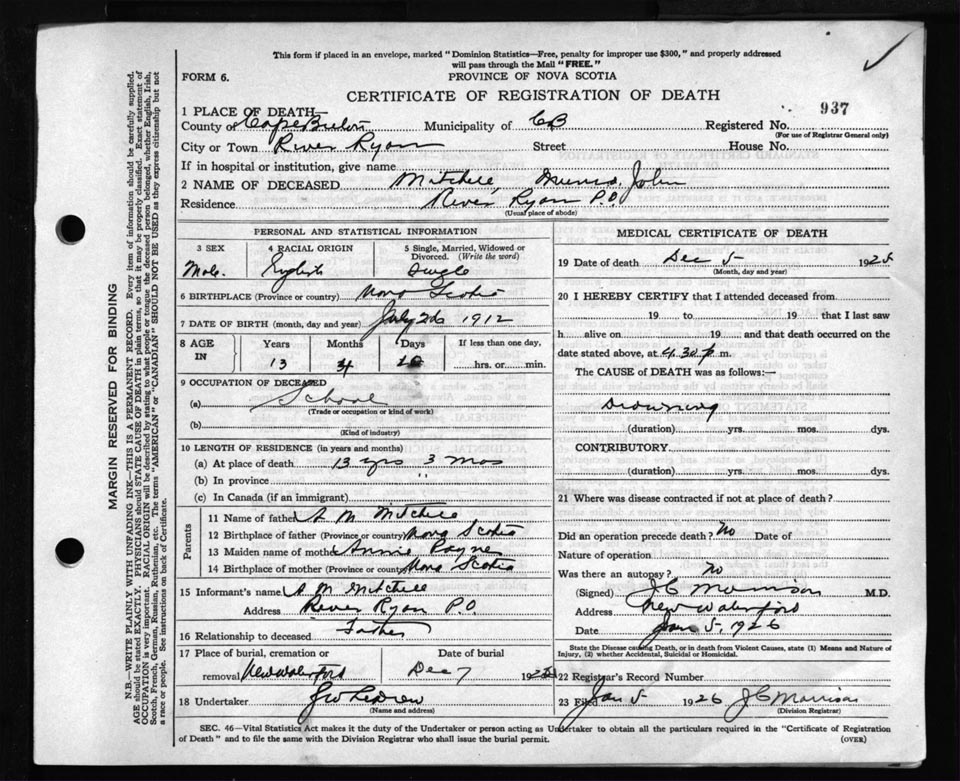 This form if placed in an envelope, marked "Dominion Statistics—Free, penalty for improper use $300," and properly addressed
will pass through the Mail "FREE."
FORM 6.
PROVINCE OF NOVA SCOTIA
CERTIFICATE OF REGISTRATION OF DEATH
937
1 PLACE OF DEATH
County of Cape Breton Municipality of CB Registered No.
(For use of Registrar General only)
City or Town River Ryan Street House No.
If in hospital or institution, give name
2 NAME OF DECEASED Mitchell, John
Residence River Ryan P.O.
(Usual place of abode)
PERSONAL AND STATISTICAL INFORMATION
3 SEX 4 RACIAL ORIGIN 5 Single, Married, Widowed or Divorced. (Write the word)
Male. English Single
6 BIRTHPLACE (Province or country) Nova Scotia
7 DATE OF BIRTH (month, day and year) July 26 1912
8 AGE IN Years Months Days If less than one day,
13 4 hrs. or min.
9 OCCUPATION OF DECEASED
(a) School
(Trade or occupation or kind of work)
(b)
(Kind of industry)
10 LENGTH OF RESIDENCE (in years and months)
(a) At place of death 13 yrs 3 mos
(b) In province "
(c) In Canada (if an immigrant)
Parents
11 Name of father A M Mitchell
12 Birthplace of father (Province or country) Nova Scotia
13 Maiden name of mother Annie Payne
14 Birthplace of mother (Province or country) Nova Scotia
15 Informant's name A M Mitchell
Address River Ryan P.O
16 Relationship to deceased Father
17 Place of burial, cremation or Date of burial
removal New Waterford Dec 7 1925
18 Undertaker
(Name and address)
MEDICAL CERTIFICATE OF DEATH
19 Date of death Dec 5 1925
(Month, day and year)
20 I HEREBY CERTIFY that I attended deceased from
19 to 19 that I last saw
h alive on 19 and that death occurred on the
date stated above, at 4.30 p m.
The CAUSE of DEATH was as follows:—
Drowning
(duration) yrs. mos. dys.
CONTRIBUTORY
(duration) yrs. mos. dys.
21 Where was disease contracted if not at place of death?
Did an operation precede death? No Date of
Nature of operation
Was there an autopsy? No
(Signed) J C Morrison M.D.
Address New Waterford
Date Jan 5, 1926
State the Disease causing Death, or in death from Violent Causes, state (1) Means and Nature of
Injury, (2) whether Accidental, Suicidal or Homicidal.
22 Registrar's Record Number
23 Filed Jan 5 1926 J C Morrison
(Division Registrar)
SEC. 46—Vital Statistics Act makes it the duty of the Undertaker or person acting as Undertaker to obtain all the particulars required in the "Certificate of Registration
of Death" and to file the same with the Division Registrar who shall issue the burial permit. (OVER)
MARGIN RESERVED FOR BINDING
N.B.—WRITE PLAINLY WITH UNFADING INK—THIS IS A PERMANENT RECORD. Every item of information should be carefully supplied.
AGE should be stated EXACTLY. PHYSICIANS should STATE CAUSE OF DEATH in plain terms, so that it may be properly classified. Exact statement of
OCCUPATION is very important. RACIAL ORIGIN will be described by stating to what people or tongue the deceased person belonged, whether English, Irish,
Scotch, French, German, Russian, Ruthenian, etc. The terms "AMERICAN" or "CANADIAN" SHOULD NOT BE USED as they express citizenship but not
a race or people. See instructions on back of Certificate.